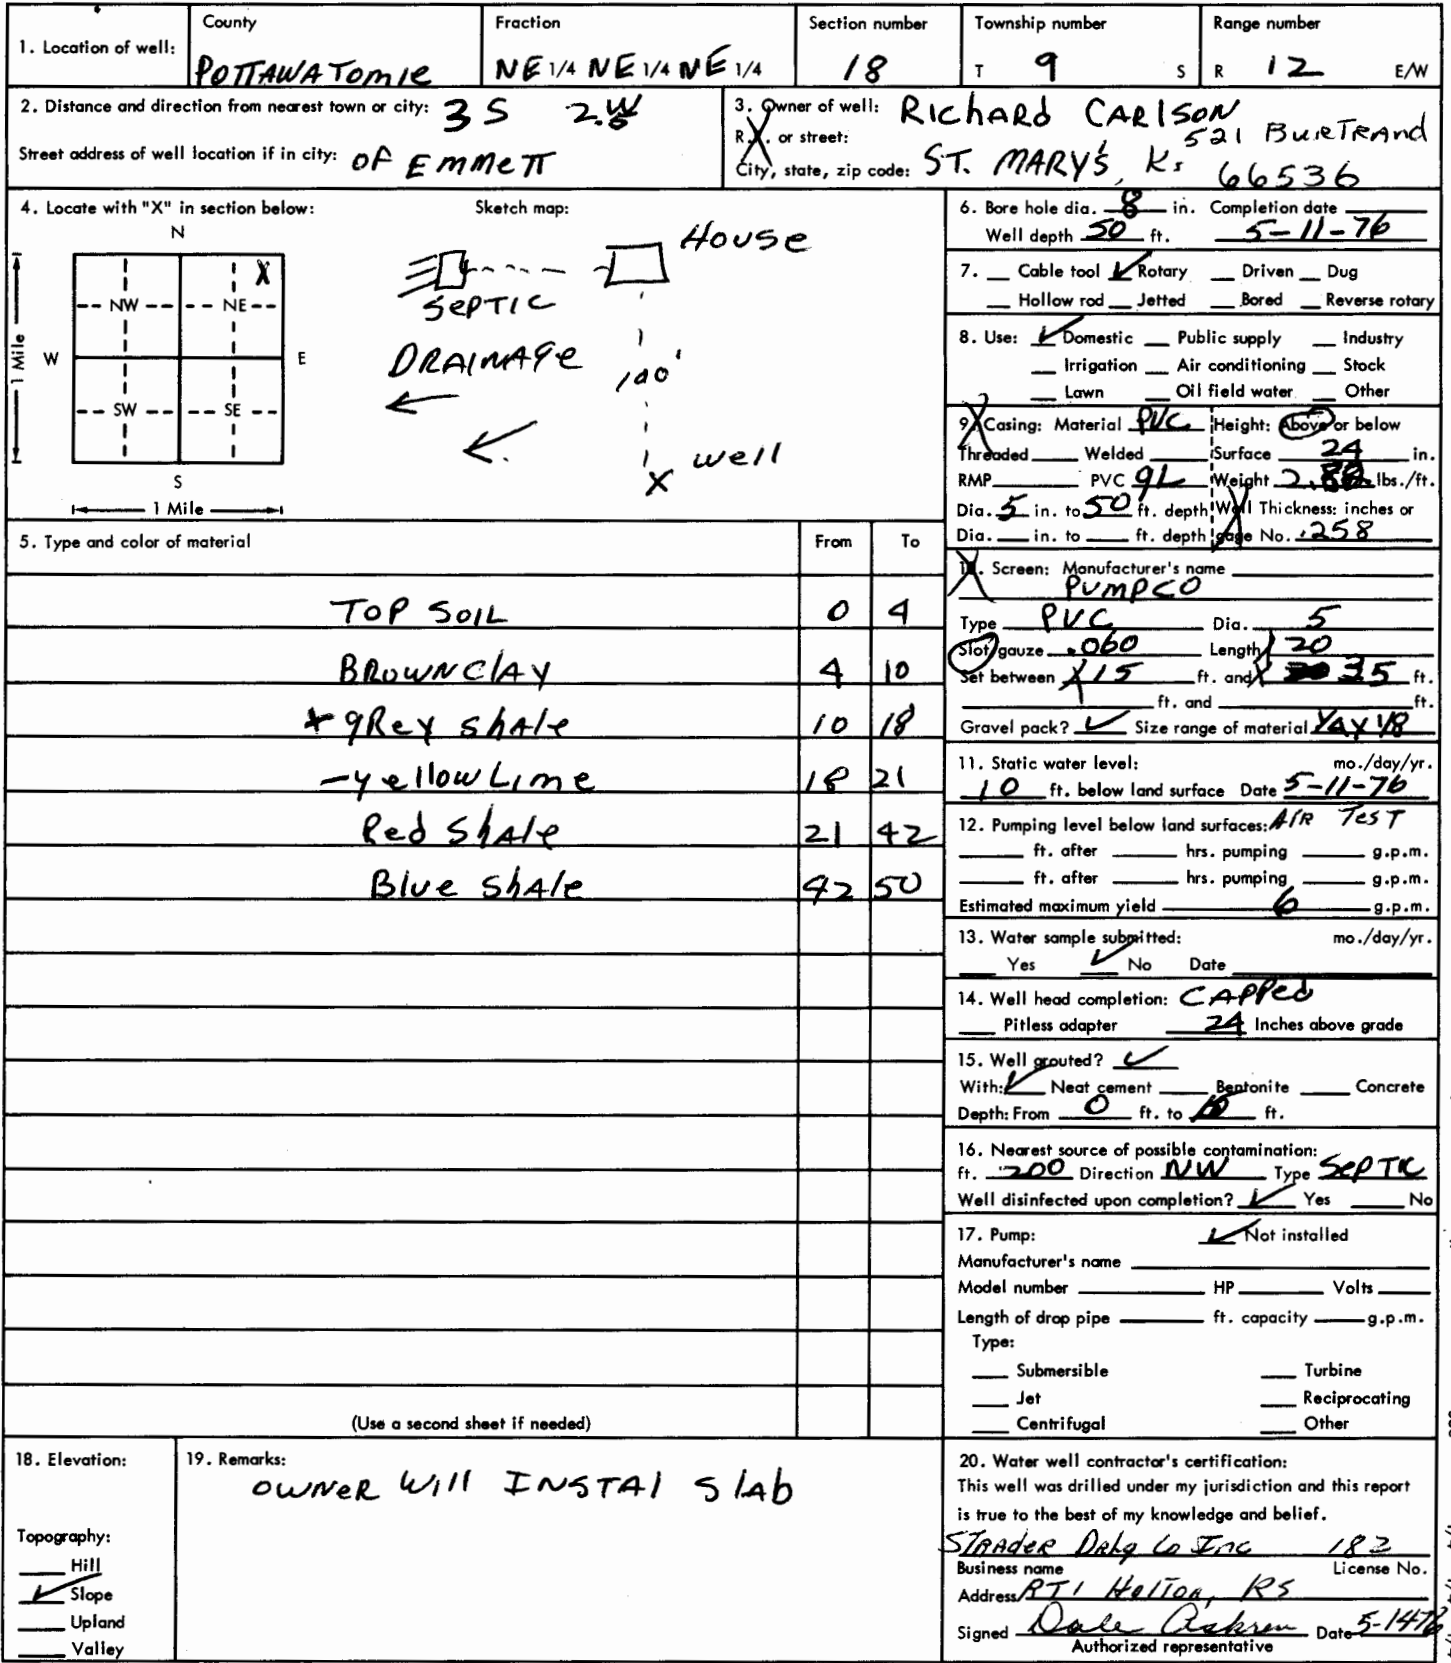 1. Location of well:
County
POTTAWATOMIE
Fraction
NE 1/4 NE 1/4 NE 1/4
Section number
18
Township number
T 9 S
Range number
R 12 E/W
2. Distance and direction from nearest town or city: 3 S 2 W
Street address of well location if in city: OF EMMETT
3. Owner of well: RICHARD CARLSON
R.R. or street: 521 BUETRAND
City, state, zip code: ST. MARY'S, Ks 66536
4. Locate with "X" in section below:
N
X
NW NE
W E
SW SE
S
1 Mile
1 Mile
Sketch map:
House
SEPTIC
DRAINAGE
100'
X well
5. Type and color of material From To
TOP SOIL 0 4
BROWN CLAY 4 10
+ gRey shale 10 18
-yellow Lime 18 21
Red Shale 21 42
Blue Shale 42 50
(Use a second sheet if needed)
6. Bore hole dia. 8 in. Completion date
Well depth 50 ft. 5-11-76
7. Cable tool ✓ Rotary Driven Dug
Hollow rod Jetted Bored Reverse rotary
8. Use: ✓ Domestic Public supply Industry
Irrigation Air conditioning Stock
Lawn Oil field water Other
9. Casing: Material PVC Height: Above or below
Threaded Welded Surface 24 in.
RMP PVC gL Weight lbs./ft.
Dia. 5 in. to 50 ft. depth Wall Thickness: inches or
Dia. in. to ft. depth gage No. .258
10. Screen: Manufacturer's name
PUMPCO
Type PVC Dia. 5
Slot/gauze .060 Length 20
Set between 15 ft. and 35 ft.
ft. and ft.
Gravel pack? ✓ Size range of material 1/4 x 1/8
11. Static water level: mo./day/yr.
10 ft. below land surface Date 5-11-76
12. Pumping level below land surfaces: AIR TEST
ft. after hrs. pumping g.p.m.
ft. after hrs. pumping g.p.m.
Estimated maximum yield 6 g.p.m.
13. Water sample submitted: mo./day/yr.
Yes ✓ No Date
14. Well head completion: CAPPED
Pitless adapter 24 Inches above grade
15. Well grouted? ✓
With: ✓ Neat cement Bentonite Concrete
Depth: From 0 ft. to 10 ft.
16. Nearest source of possible contamination:
ft. 200 Direction NW Type SEPTIC
Well disinfected upon completion? ✓ Yes No
17. Pump: ✓ Not installed
Manufacturer's name
Model number HP Volts
Length of drop pipe ft. capacity g.p.m.
Type:
Submersible Turbine
Jet Reciprocating
Centrifugal Other
18. Elevation:
Topography:
Hill
✓ Slope
Upland
Valley
19. Remarks:
OWNER WILL INSTAL SLAB
20. Water well contractor's certification:
This well was drilled under my jurisdiction and this report
is true to the best of my knowledge and belief.
STRADER DRLG Co Inc 182
Business name License No.
Address RT1 Holton, KS
Signed Dale Askren Date 5-1476
Authorized representative